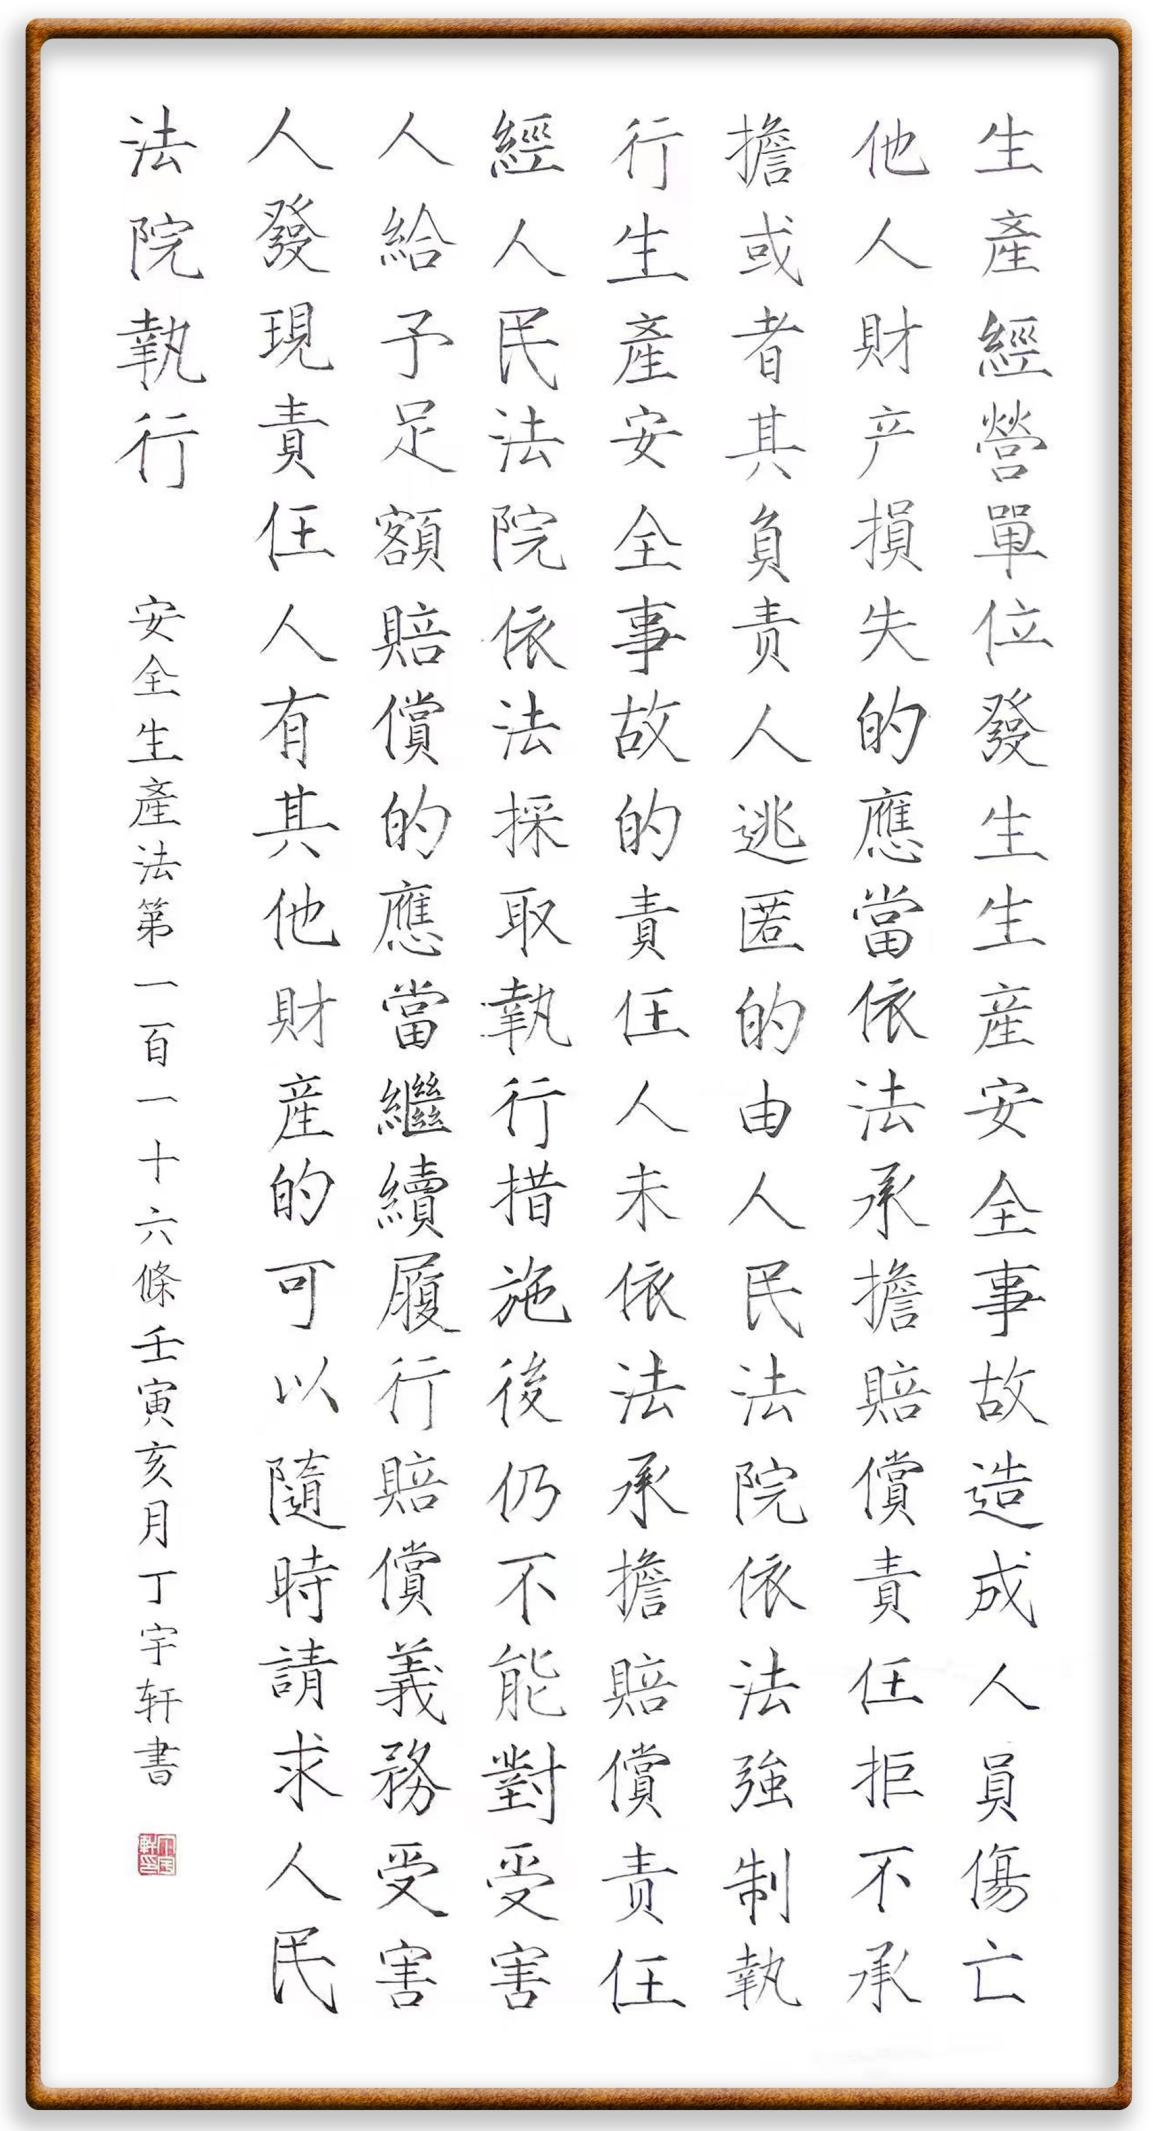 生產經營單位發生生産安全事故造成人員傷亡
他人財产損失的應當依法承擔賠償責任拒不承
擔或者其負责人逃匿的由人民法院依法強制執
行生產安全事故的責任人未依法承擔賠償责任
經人民法院依法採取執行措施後仍不能對受害
人給予足額賠償的應當繼續履行賠償義務受害
人發現責任人有其他財産的可以隨時請求人民
法院執行
安全生產法第一百一十六條壬寅亥月丁宇轩書